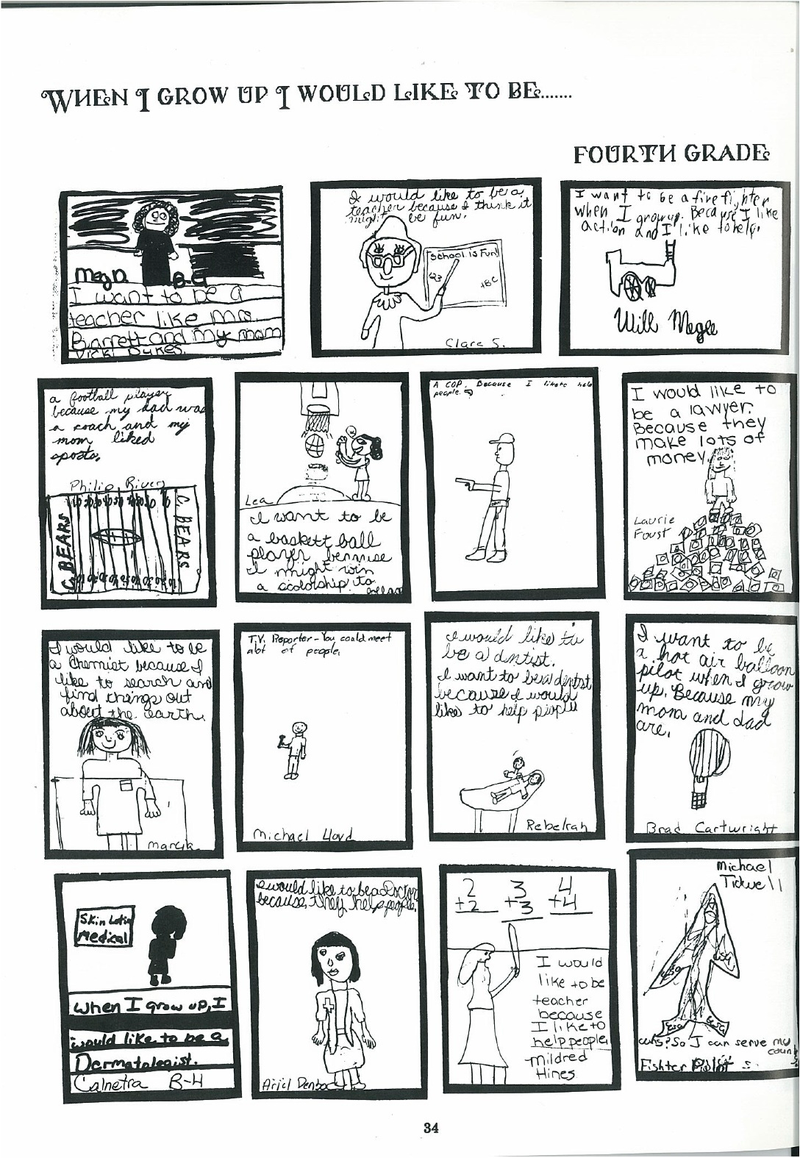 WHEN I GROW UP I WOULD LIKE TO BE.......
FOURTH GRADE
Megan B-G
I want to be a
teacher like Mrs.
Barrett and my mom
Vicki Dykes.
I would like to be a
teacher because I think it
might be fun.
School is Fun!
123
ABC
Clare S.
I want to be a firefighter
when I grow up. Because I like
action and I like to help.
Will Magee
a football player
because my dad was
a coach and my
mom liked
sports.
Philip River
C. BEARS
C. BEARS
Lea
I want to be
a baskett ball
player because
I might win
a scolorship to
A COP. Because I likete help
people.
I would like to
be a lawyer.
Because they
make lots of
money.
Laurie
Foust
I would like to be
a Chemist because I
like to search and
find things out
about the earth.
Marcia
T.V. Reporter-You could meet
alot of people.
Michael Lloyd
I would like to
be a dentist.
I want to be a dentist
because I would
like to help people
Rebekah
I want to be
a hot air balloon
pilot when I grow
up. Because my
mom and dad
are.
Brad Cartwright
Skin Lotion
Medical
When I grow up, I
would like to be a
Dermatologist.
Calnetra B-H
I would like to be a Doctor
because, they help people.
Ariel
2 3 4
+2 +3 +4
I would
like to be
teacher
because
I like to
help people.
Mildred
Hines
Michael
Tidwell
why? So I can serve my
Fighter Pilot
34